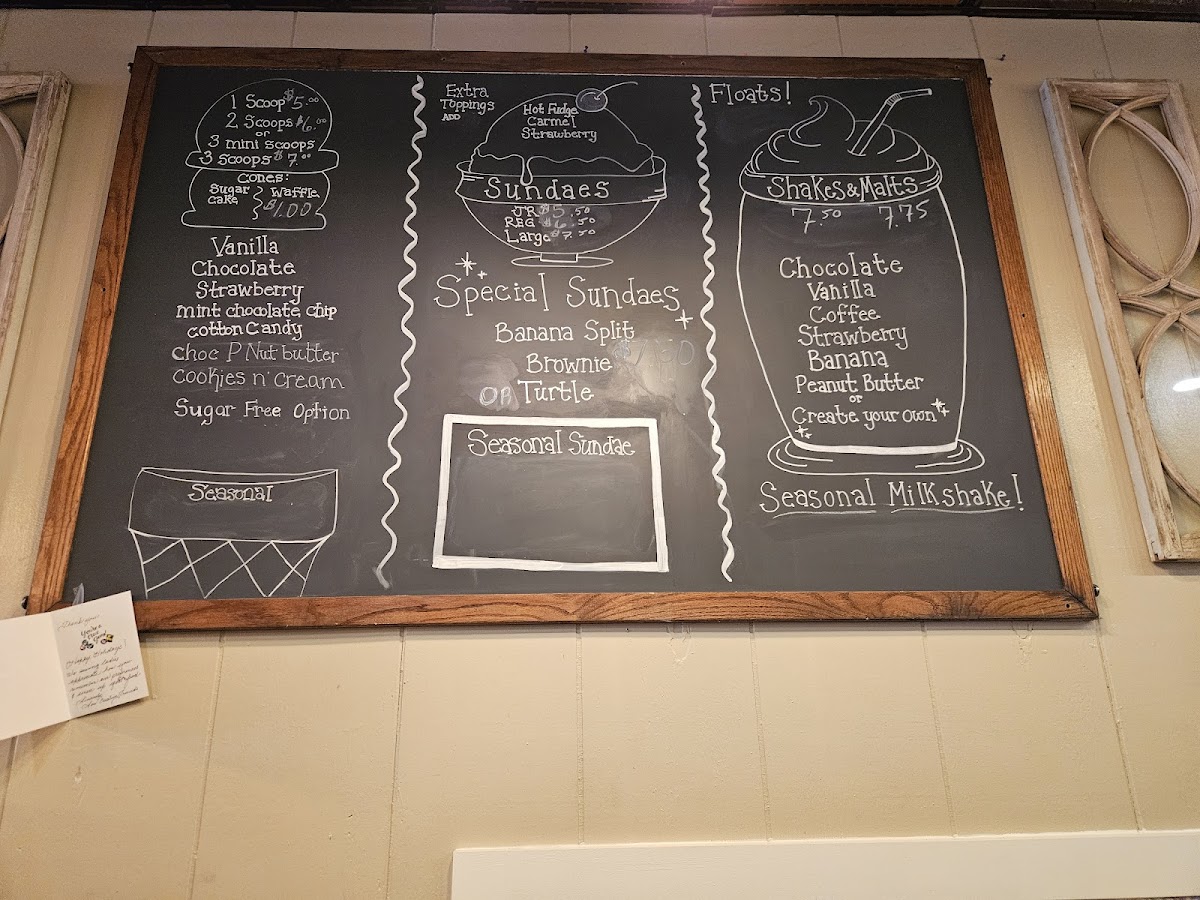 1 Scoop $5.00
2 Scoops $6.00
or
3 mini scoops
3 Scoops $7.00
Cones:
Sugar } Waffle
cake } $1.00
Vanilla
Chocolate
Strawberry
mint chocolate chip
cotton Candy
choc P Nut butter
cookies n' cream
Sugar Free Option
Seasonal
Extra
Toppings
ADD
Hot Fudge
Carmel
Strawberry
Sundaes
JR $5.50
REG $6.50
Large $7.50
Special Sundaes
Banana Split
Brownie
OR Turtle
Seasonal Sundae
Floats!
Shakes & Malts
7.50 7.75
Chocolate
Vanilla
Coffee
Strawberry
Banana
Peanut Butter
or
Create your own
Seasonal Milkshake!
Thank you
Happy Holidays!